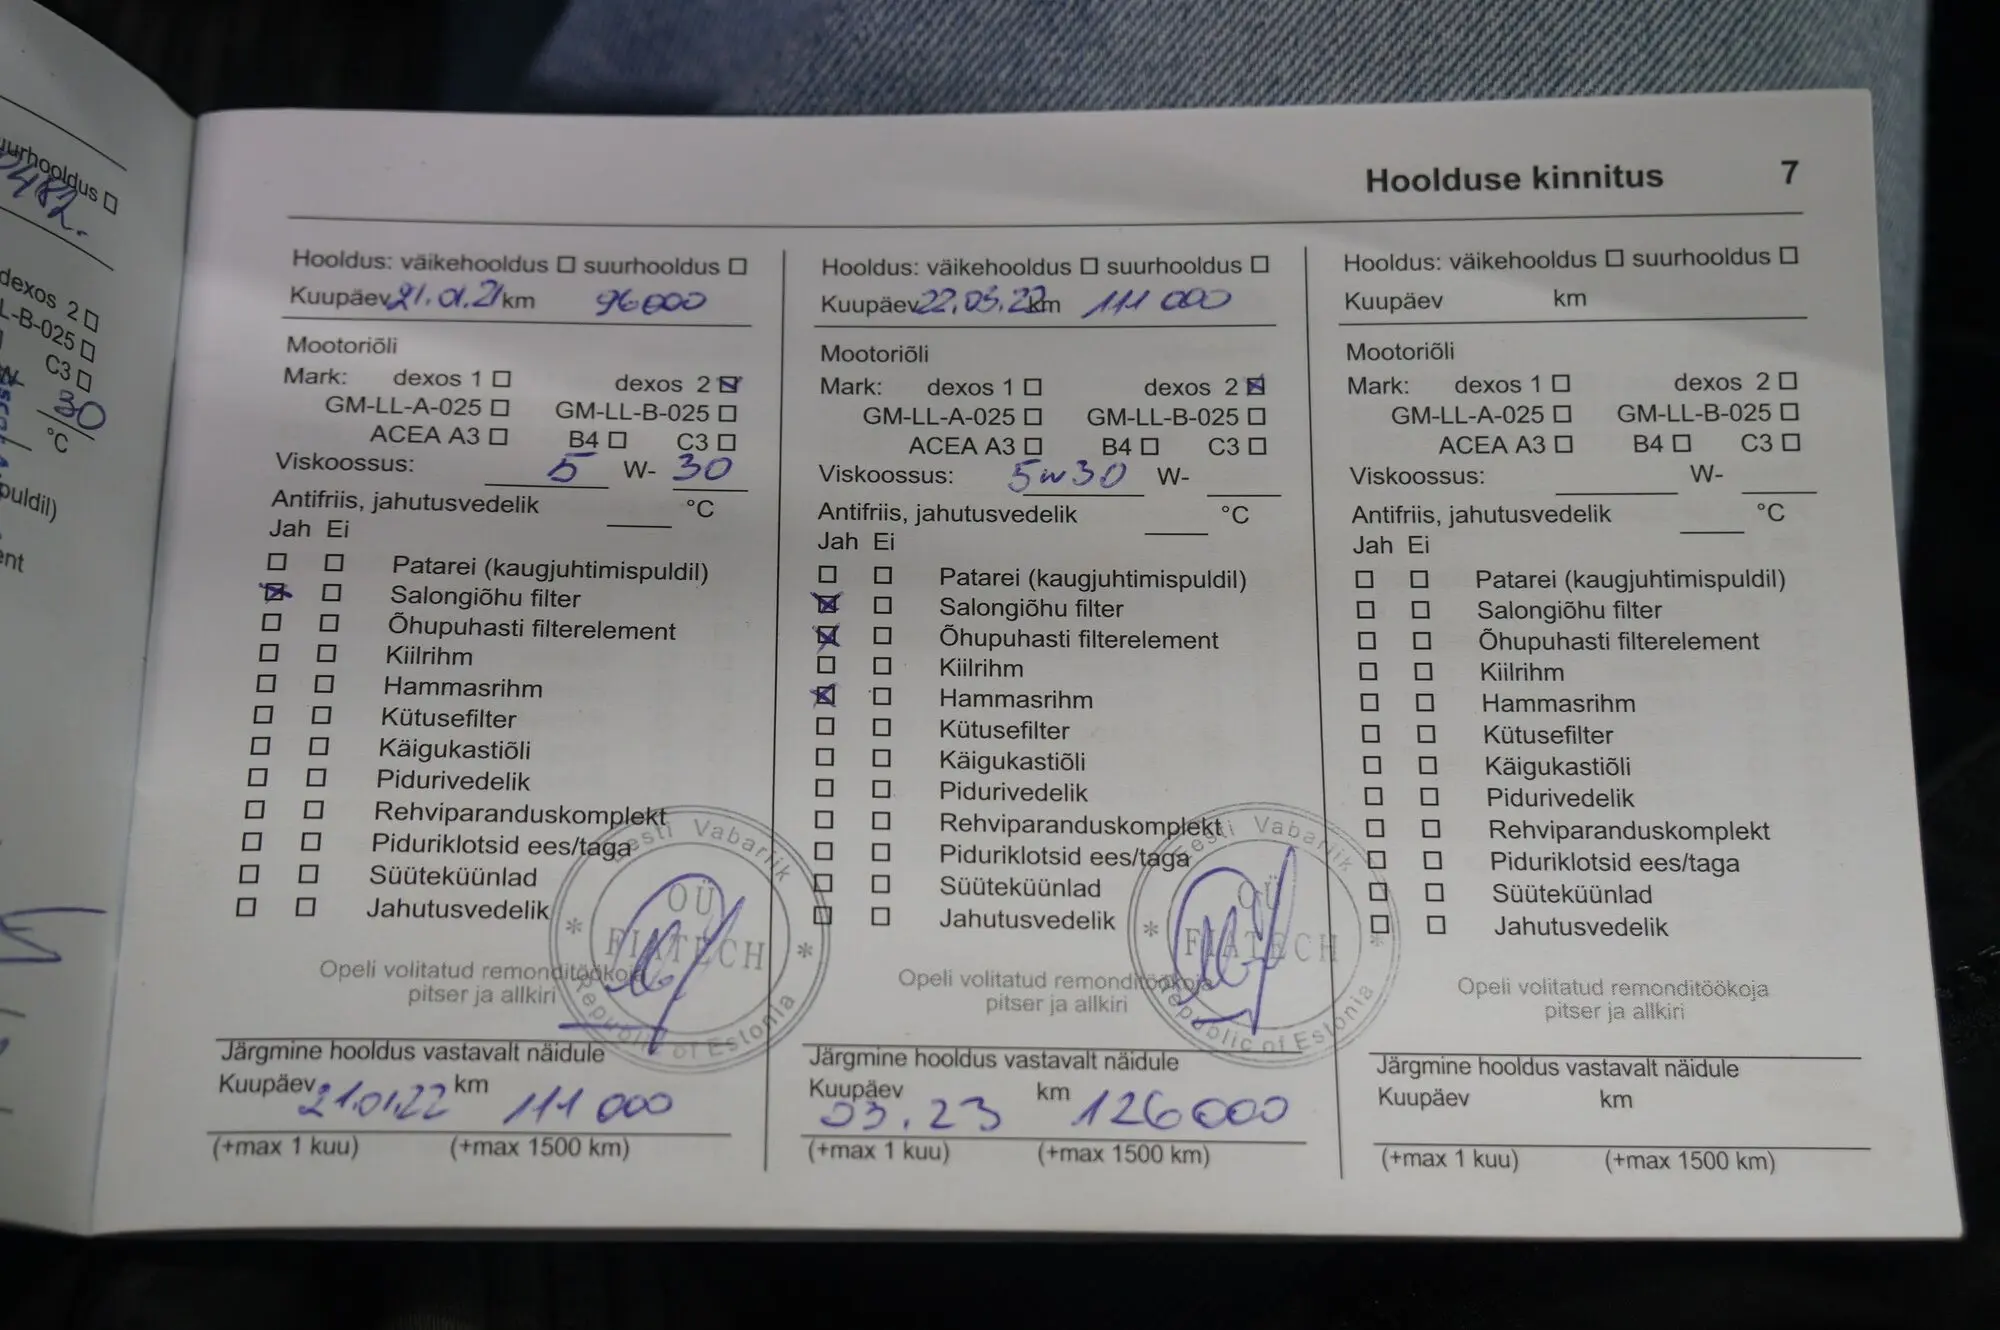 uurhooldus
482.
dexos 2
L-B-025
C3
30
°C
puldil)
ent
Hoolduse kinnitus 7
Hooldus: väikehooldus suurhooldus
Kuupäev 21.01.21 km 96000
Mootoriõli
Mark: dexos 1 dexos 2
GM-LL-A-025 GM-LL-B-025
ACEA A3 B4 C3
Viskoossus: 5 W- 30
Antifriis, jahutusvedelik °C
Jah Ei
Patarei (kaugjuhtimispuldil)
Salongiõhu filter
Õhupuhasti filterelement
Kiilrihm
Hammasrihm
Kütusefilter
Käigukastiõli
Pidurivedelik
Rehviparanduskomplekt
Piduriklotsid ees/taga
Süüteküünlad
Jahutusvedelik
Eesti Vabariik
OÜ
FIATECH
Republic of Estonia
Opeli volitatud remonditöökoja
pitser ja allkiri
Järgmine hooldus vastavalt näidule
Kuupäev 21.01.22 km 111 000
(+max 1 kuu) (+max 1500 km)
Hooldus: väikehooldus suurhooldus
Kuupäev 22.03.22 km 111 000
Mootoriõli
Mark: dexos 1 dexos 2
GM-LL-A-025 GM-LL-B-025
ACEA A3 B4 C3
Viskoossus: 5w30 W-
Antifriis, jahutusvedelik °C
Jah Ei
Patarei (kaugjuhtimispuldil)
Salongiõhu filter
Õhupuhasti filterelement
Kiilrihm
Hammasrihm
Kütusefilter
Käigukastiõli
Pidurivedelik
Rehviparanduskomplekt
Piduriklotsid ees/taga
Süüteküünlad
Jahutusvedelik
Eesti Vabariik
OÜ
FIATECH
Republic of Estonia
Opeli volitatud remonditöökoja
pitser ja allkiri
Järgmine hooldus vastavalt näidule
Kuupäev 03.23 km 126000
(+max 1 kuu) (+max 1500 km)
Hooldus: väikehooldus suurhooldus
Kuupäev km
Mootoriõli
Mark: dexos 1 dexos 2
GM-LL-A-025 GM-LL-B-025
ACEA A3 B4 C3
Viskoossus: W-
Antifriis, jahutusvedelik °C
Jah Ei
Patarei (kaugjuhtimispuldil)
Salongiõhu filter
Õhupuhasti filterelement
Kiilrihm
Hammasrihm
Kütusefilter
Käigukastiõli
Pidurivedelik
Rehviparanduskomplekt
Piduriklotsid ees/taga
Süüteküünlad
Jahutusvedelik
Opeli volitatud remonditöökoja
pitser ja allkiri
Järgmine hooldus vastavalt näidule
Kuupäev km
(+max 1 kuu) (+max 1500 km)